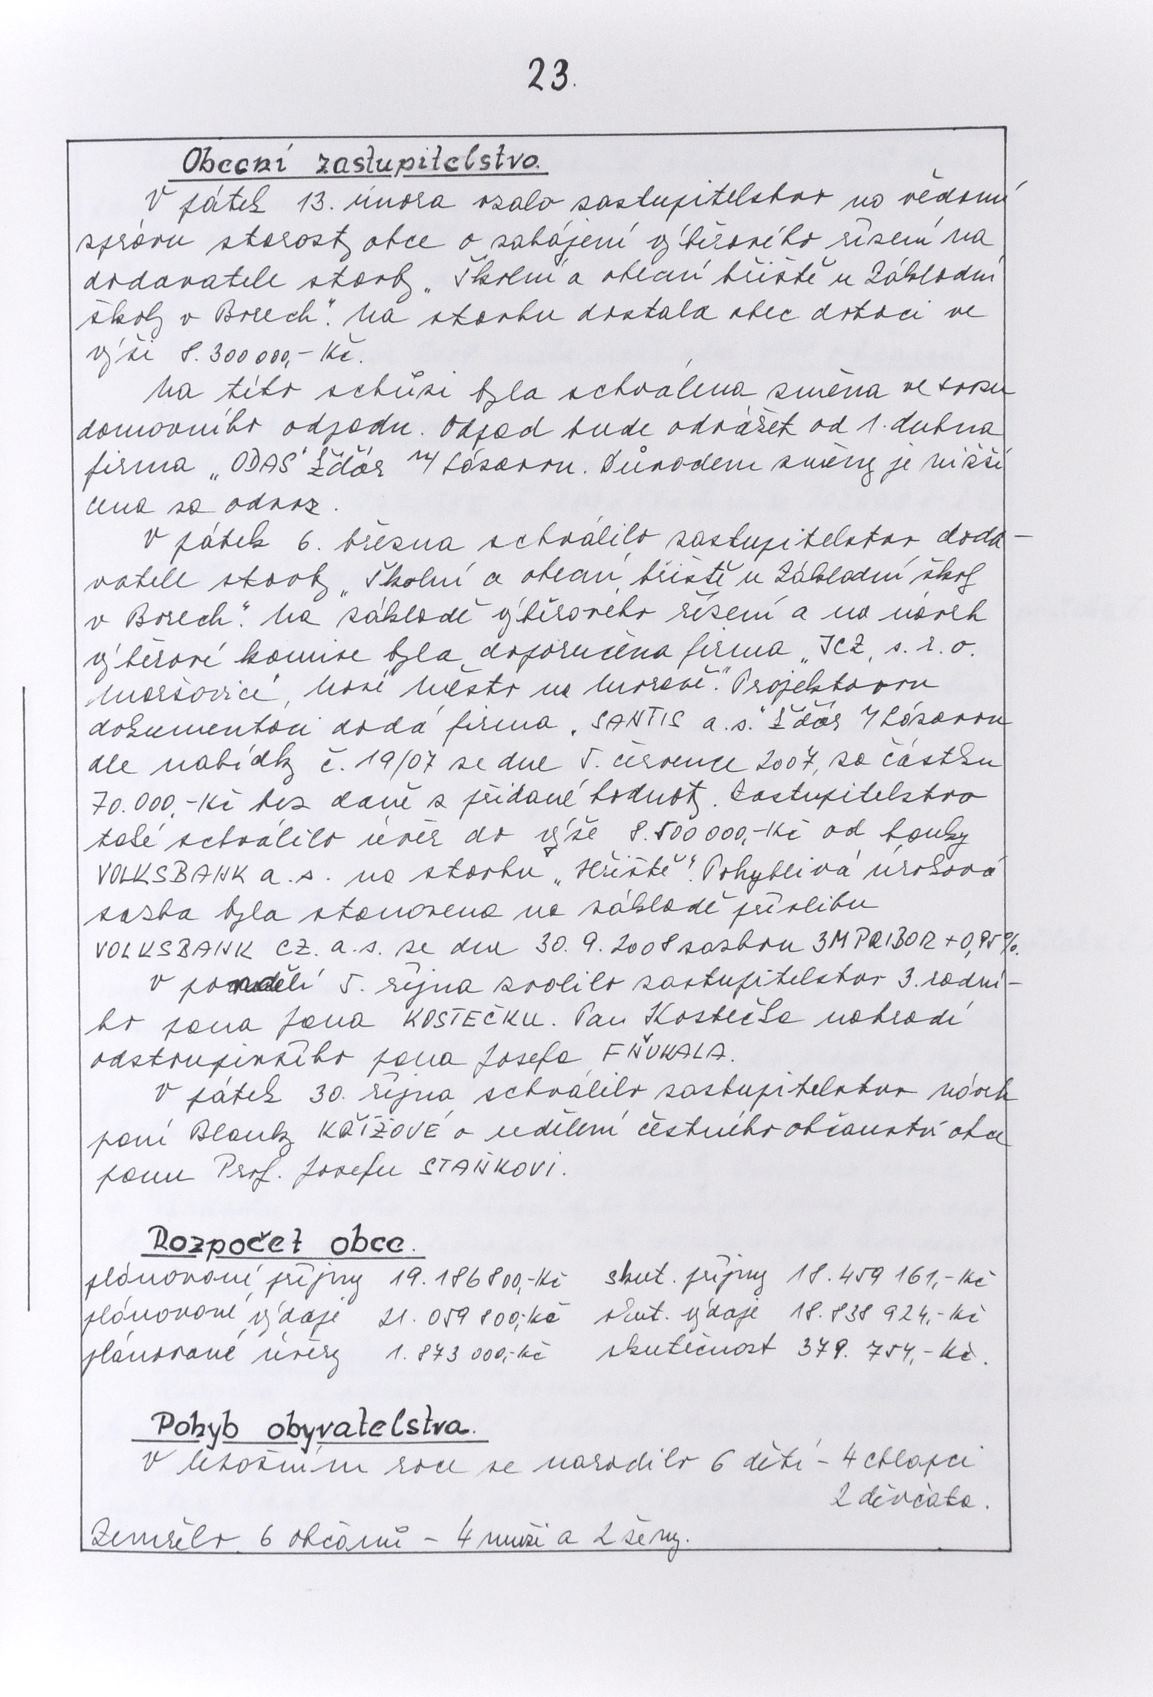 23.
Obecní zastupitelstvo.
V pátek 13. února vzalo zastupitelstvo na vědomí
zprávu starosty obce o zahájení výběrového řízení na
dodavatele stavby „Školní a obecní hřiště u Základní
školy v Borech". Na stavbu dostala obec dotaci ve
výši 8.300000,- Kč.
Na této schůzi byla schválena změna ve svozu
domovního odpadu. Odpad bude odvážet od 1. dubna
firma „ODAS" Žďár n/Sázavou. Důvodem změny je nižší
cena za odvoz.
V pátek 6. března schválilo zastupitelstvo doda-
vatele stavby „Školní a obecní hřiště u Základní školy
v Borech". Na základě výběrového řízení a na návrh
výběrové komise byla doporučena firma „ICZ, s. r. o.
Maršovice, Nové Město na Moravě". Projektovou
dokumentaci dodá firma „SANTIS a.s." Žďár n/Sázavou
dle nabídky č. 19/07 ze dne 5. července 2007, za částku
70.000,- Kč bez daně z přidané hodnoty. Zastupitelstvo
také schválilo úvěr do výše 8.500000,- Kč od banky
VOLKSBANK a.s. na stavbu „Hřiště". Pohyblivá úroková
sazba byla stanovena na základě příslibu
VOLKSBANK CZ. a.s. ze dne 30. 9. 2008 sazbou 3M PRIBOR +0,95%.
V pondělí 5. října zvolilo zastupitelstvo 3. radní-
ho pana Jana KOSTEČKU. Pan Kostečka nahradí
odstoupivšího pana Josefa FŇUKALA.
V pátek 30. října schválilo zastupitelstvo návrh
paní Blanky KŘÍŽOVÉ o udělení čestného občanství obce
panu Prof. Josefu STAŇKOVI.
Rozpočet obce.
plánované příjmy 19.186800,- Kč skut. příjmy 18.459161,- Kč
plánované výdaje 21.059800,- Kč skut. výdaje 18.838924,- Kč
plánované úvěry 1.873000,- Kč skutečnost 379.754,- Kč.
Pohyb obyvatelstva.
V letošním roce se narodilo 6 dětí - 4 chlapci
2 děvčata.
Zemřelo 6 občanů - 4 muži a 2 ženy.